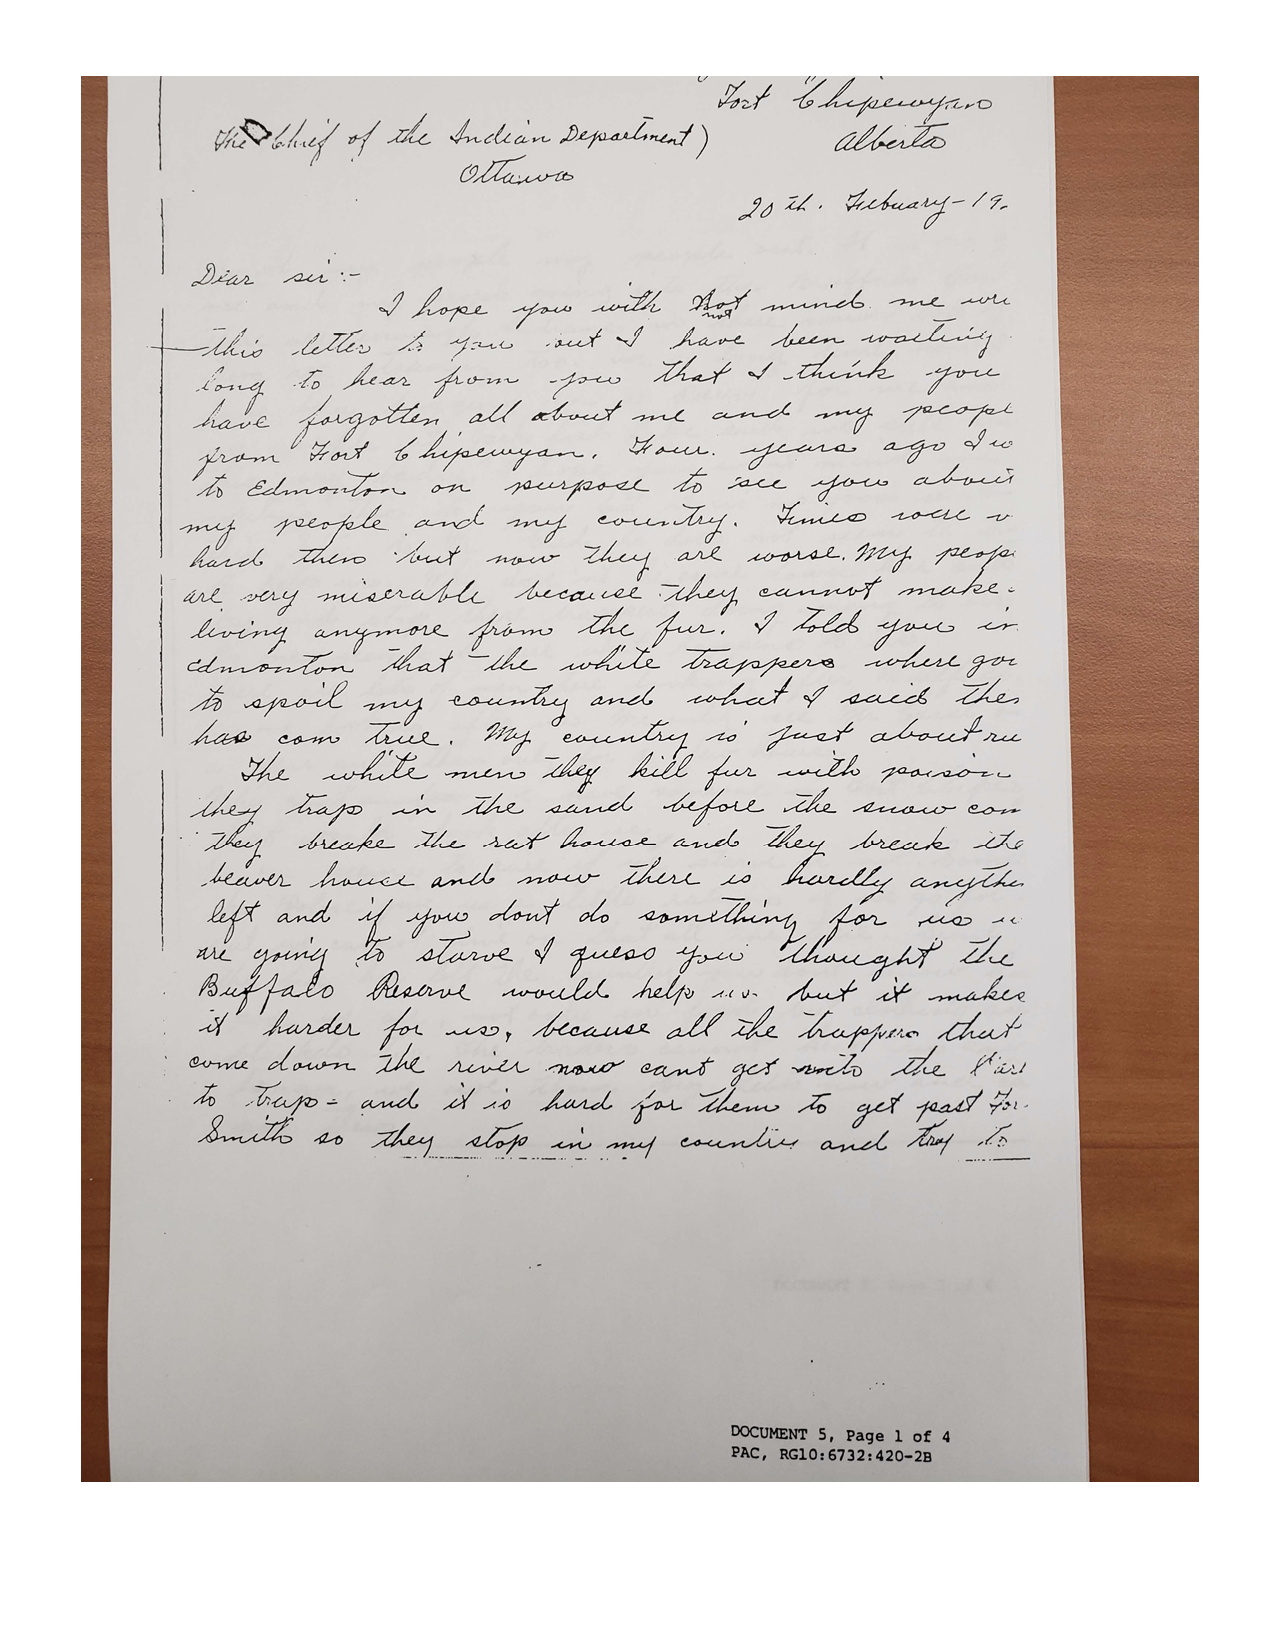 Fort Chipewyan
The Chief of the Indian Department)
Alberta
Ottawa
20th. Febuary-19.
Dear sir:-
I hope you with not mind me wri
this letter to you but I have been waiting
long to hear from you that I think you
have forgotten all about me and my peopl
from Fort Chipewyan. Four. years ago I w
to Edmonton on purpose to see you about
my people and my country. Times were v
hard then but now they are worse. My peop
are very miserable because they cannot make
living anymore from the fur. I told you in
Edmonton that the white trappers where goi
to spoil my country and what I said then
has com true. My country is just about ru
The white men they kill fur with poison
they trap in the sand before the snow com
they breake the rat house and they break the
beaver house and now there is hardly anythin
left and if you dont do something for us w
are going to starve I guess you thought the
Buffalo Reserve would help us but it makes
it harder for us, because all the trappers that
come down the river now cant get into the Par
to trap - and it is hard for them to get past For
Smith so they stop in my countrie and try to
DOCUMENT 5, Page 1 of 4
PAC, RG10:6732:420-2B